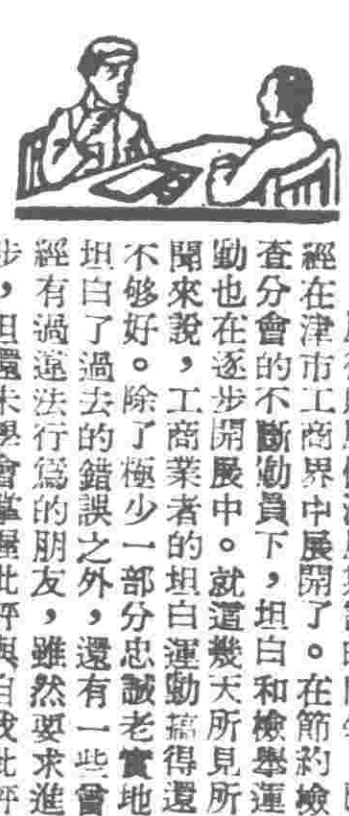 經在津市工商界中展開了。在節約檢
查分會的不斷動員下,坦白和檢舉運
動也在逐步開展中。就這幾天所見所
聞來說,工商業者的坦白運動搞得還
不够好。除了極少一部分忠誠老實地
坦白了過去的錯誤之外,還有一些曾
經有過違法行爲的朋友,雖然要求進
步,但還未學會掌握批評與自我批評